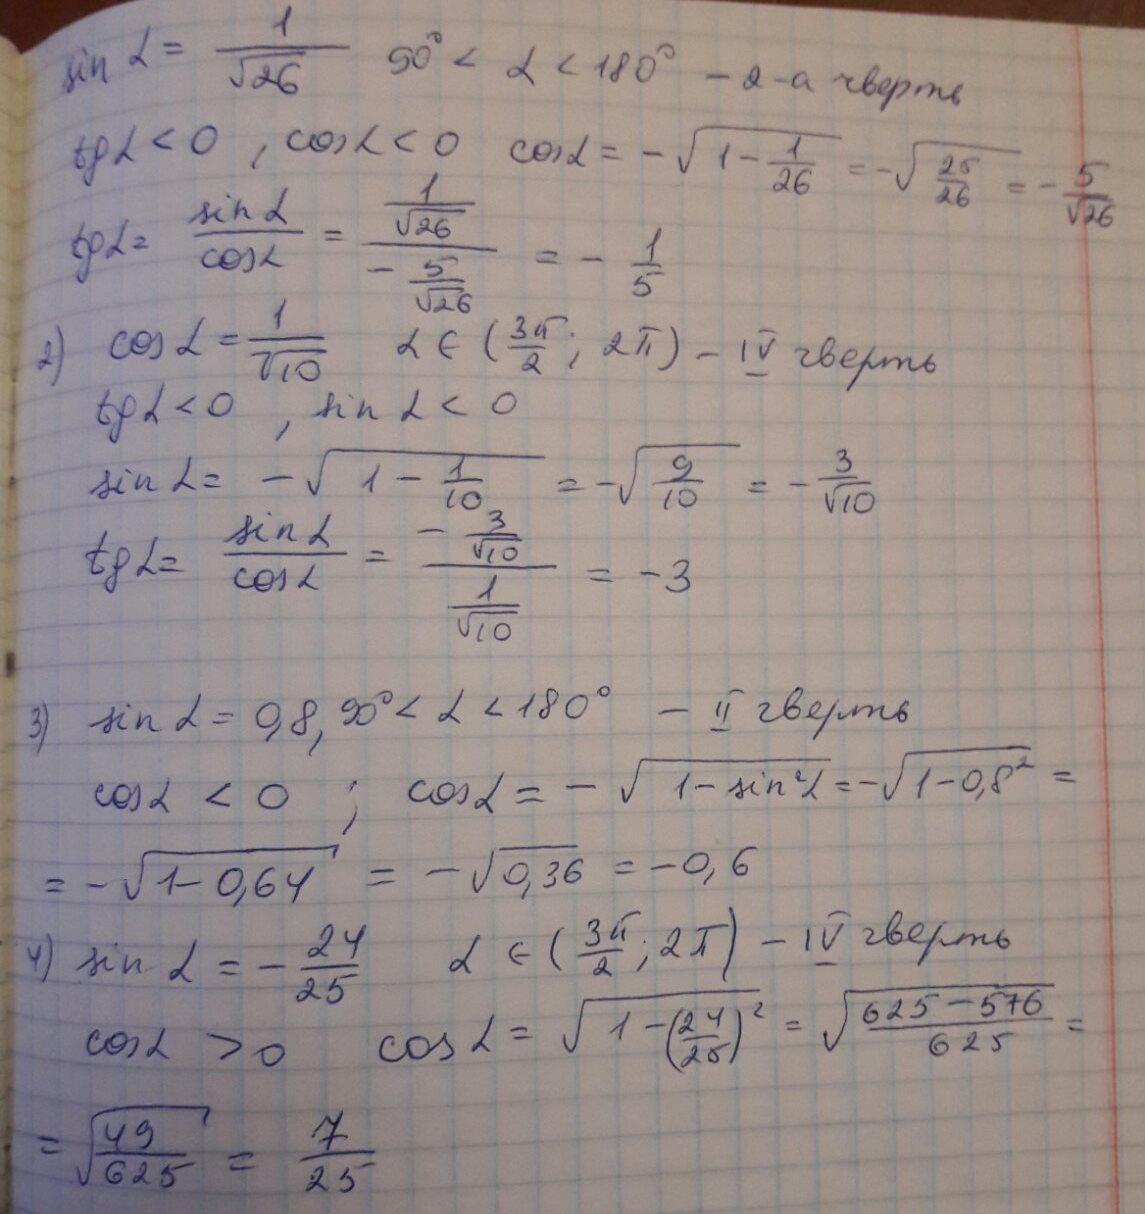 sin α = 1/√26 90° < α < 180° – 2-а чверть
tgα < 0 , cosα < 0 cosα = -√(1 - 1/26) = -√(25/26) = -5/√26
tgα = sinα/cosα = (1/√26)/(-5/√26) = -1/5
2) cosα = 1/√10 α ∈ (3π/2 ; 2π) – IV чверть
tgα < 0 , sinα < 0
sinα = -√(1 - 1/10) = -√(9/10) = -3/√10
tgα = sinα/cosα = (-3/√10)/(1/√10) = -3
3) sinα = 0,8, 90° < α < 180° – II чверть
cosα < 0 ; cosα = -√(1 - sin²α) = -√(1 - 0,8²) =
= -√(1 - 0,64) = -√0,36 = -0,6
4) sinα = -24/25 α ∈ (3π/2 ; 2π) – IV чверть
cosα > 0 cosα = √(1 - (24/25)²) = √((625 - 576)/625) =
= √(49/625) = 7/25